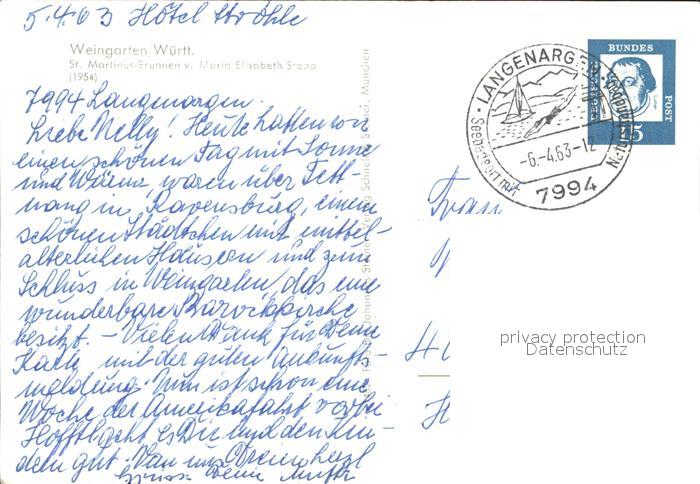 5.4.63 Hotel Ströhle
Weingarten/Württ.
St. Martinus-Brunnen v. Maria Elisabeth Stapp
(1954)
7994 Langenargen.
Liebe Nelly! Heute hatten wir
einen schönen Tag mit Sonne
und Wärme, waren über Tett-
nang in Ravensburg, einem
schönen Städtchen mit mittel-
alterlichen Häusern und zum
Schluss in Weingarten, das eine
wunderbare Barockkirche
besitzt. – Vielen Dank für Deine
Karte mit der guten Ankunfts-
meldung. Nun ist schon eine
Woche der Amerikafahrt vorbei
Hofftl. geht es Dir und den Kin-
dern gut. Von uns Dreien herzl
Grüsse Deine Mutti
LANGENARGEN
-6.-4.63-12
7994
DEUTSCHE
BUNDES
POST
15
Frau
privacy protection
Datenschutz